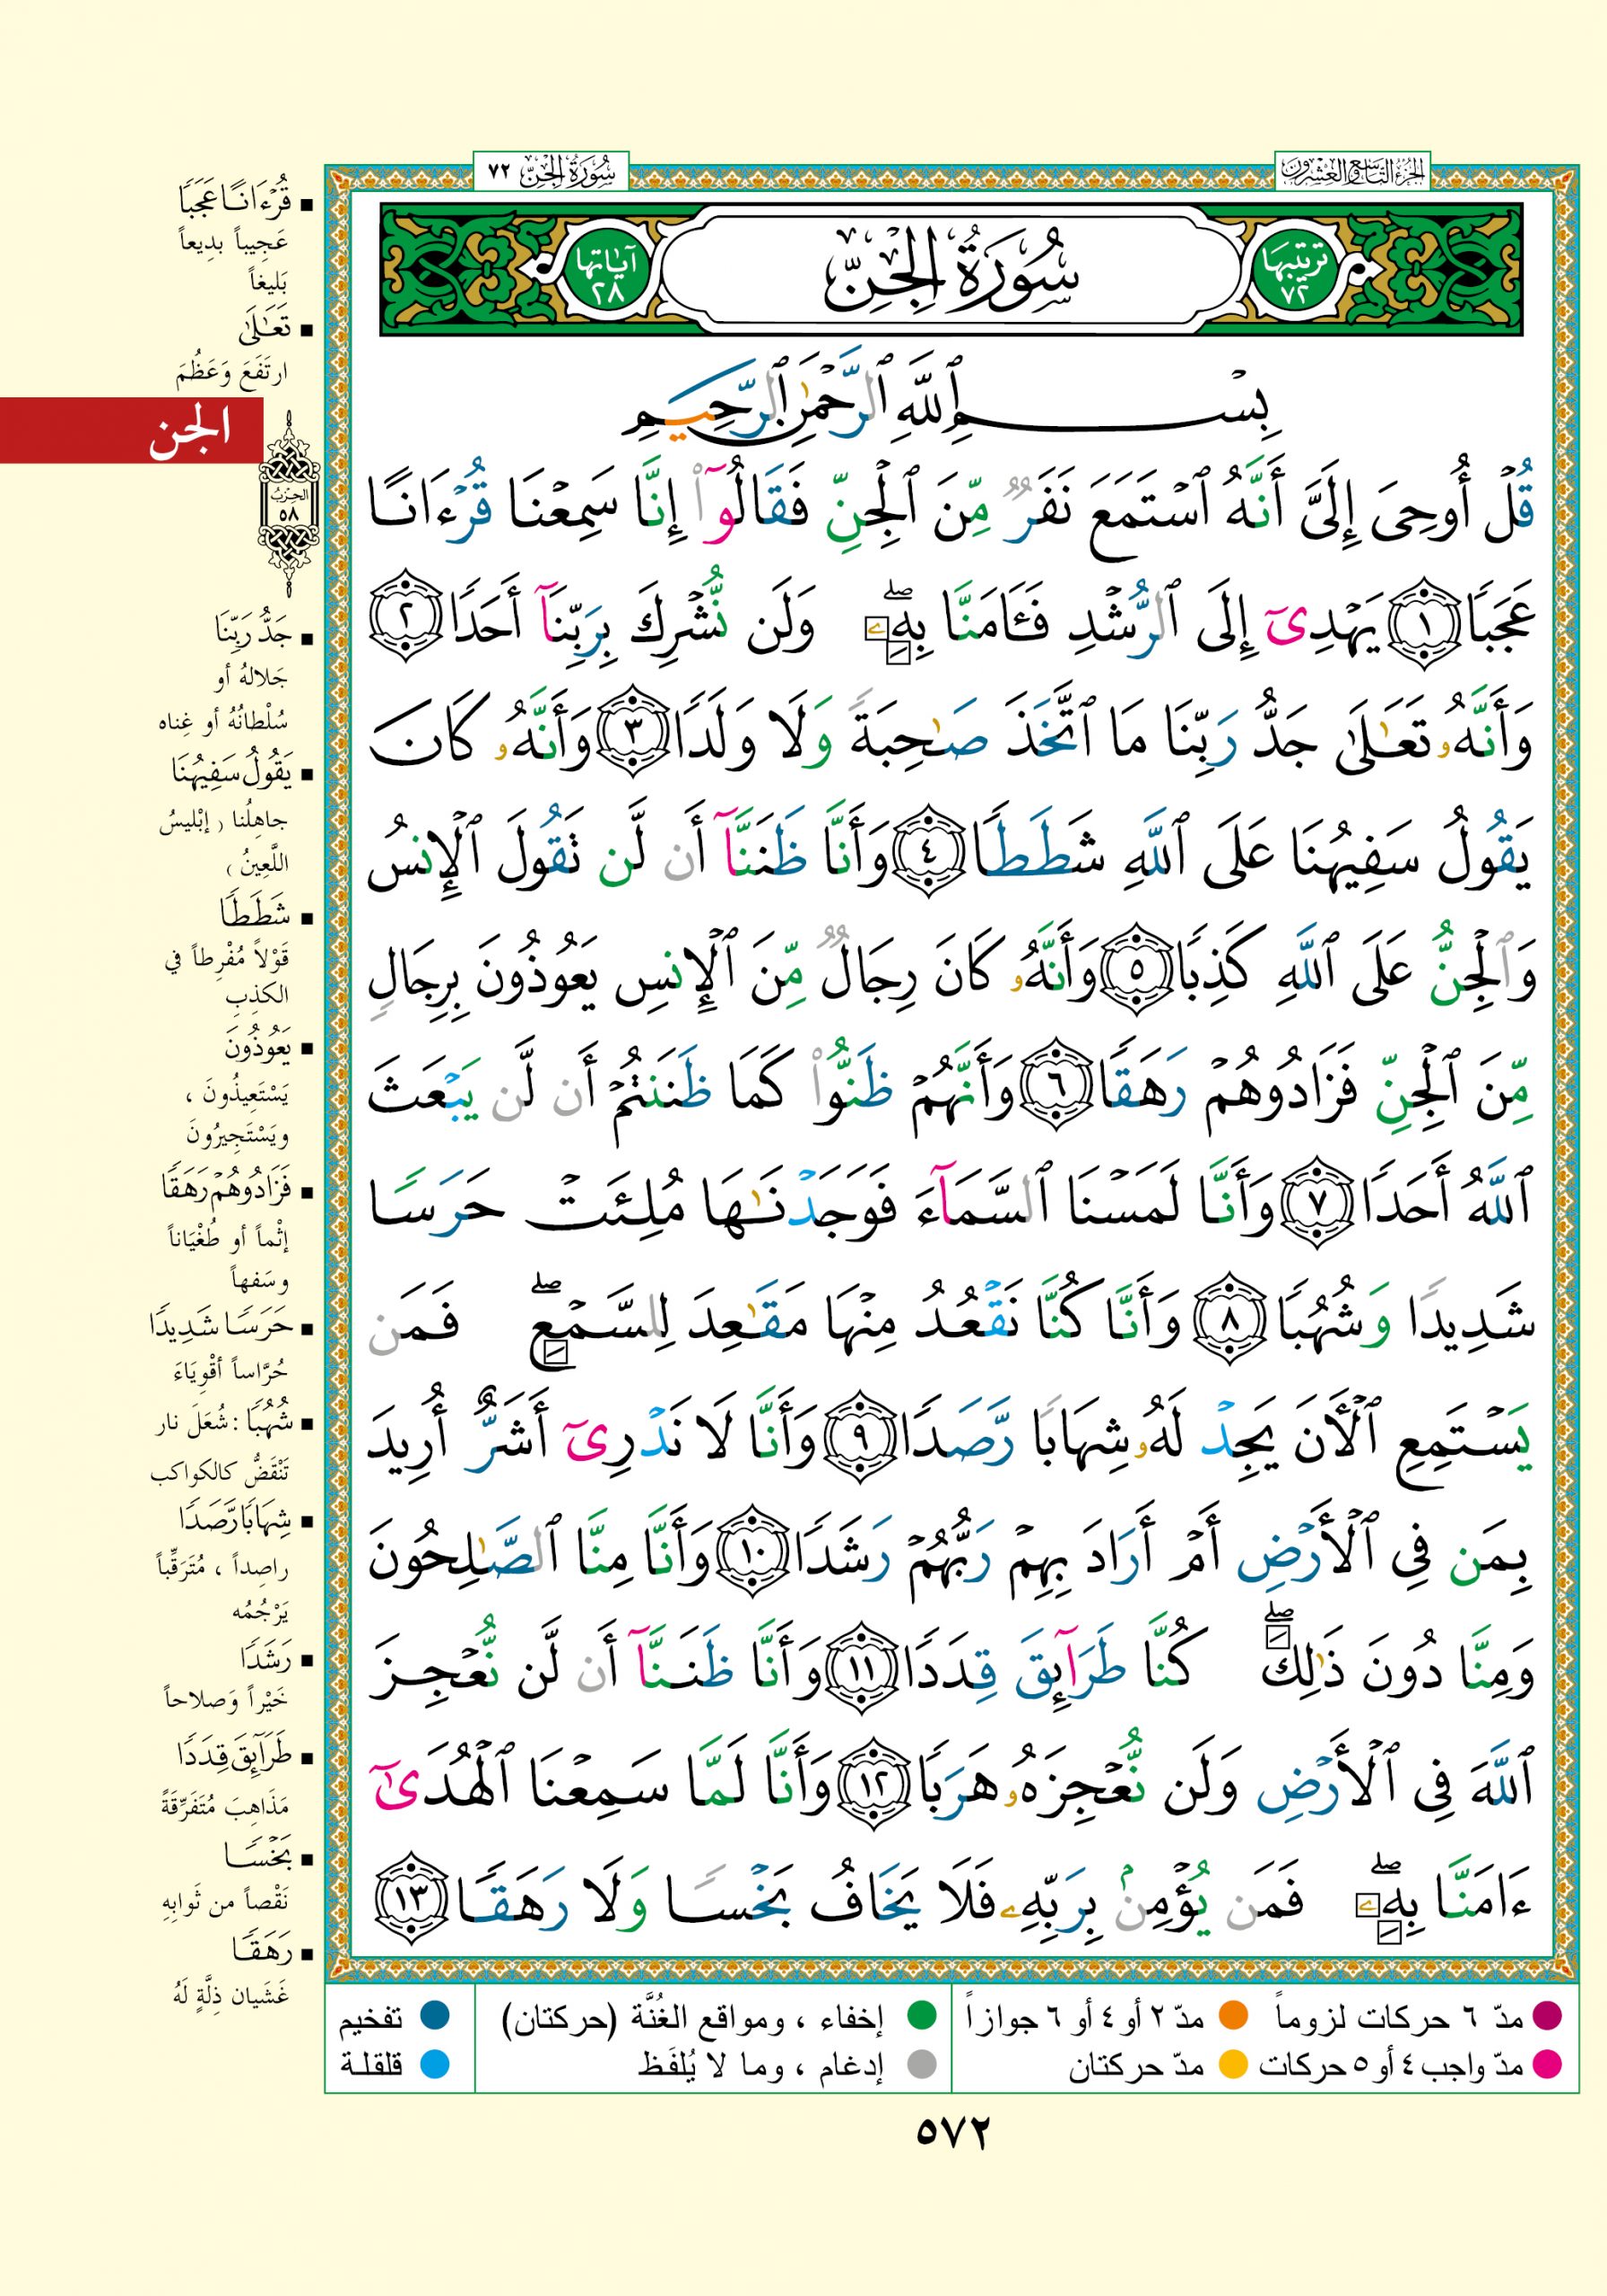 الجزء التاسع والعشرون
سُورَةُ الجِنّ ٧٢
ترتيبها ٧٢
سُورَةُ الجِنِّ
آياتها ٢٨
بِسْمِ ٱللَّهِ ٱلرَّحْمَٰنِ ٱلرَّحِيمِ
قُلْ أُوحِىَ إِلَىَّ أَنَّهُ ٱسْتَمَعَ نَفَرٌ مِّنَ ٱلْجِنِّ فَقَالُوٓا۟ إِنَّا سَمِعْنَا قُرْءَانًا
عَجَبًا ١ يَهْدِىٓ إِلَى ٱلرُّشْدِ فَـَٔامَنَّا بِهِۦ ۖ وَلَن نُّشْرِكَ بِرَبِّنَآ أَحَدًا ٢
وَأَنَّهُۥ تَعَٰلَىٰ جَدُّ رَبِّنَا مَا ٱتَّخَذَ صَٰحِبَةً وَلَا وَلَدًا ٣ وَأَنَّهُۥ كَانَ
يَقُولُ سَفِيهُنَا عَلَى ٱللَّهِ شَطَطًا ٤ وَأَنَّا ظَنَنَّآ أَن لَّن تَقُولَ ٱلْإِنسُ
وَٱلْجِنُّ عَلَى ٱللَّهِ كَذِبًا ٥ وَأَنَّهُۥ كَانَ رِجَالٌ مِّنَ ٱلْإِنسِ يَعُوذُونَ بِرِجَالٍ
مِّنَ ٱلْجِنِّ فَزَادُوهُمْ رَهَقًا ٦ وَأَنَّهُمْ ظَنُّوا۟ كَمَا ظَنَنتُمْ أَن لَّن يَبْعَثَ
ٱللَّهُ أَحَدًا ٧ وَأَنَّا لَمَسْنَا ٱلسَّمَآءَ فَوَجَدْنَٰهَا مُلِئَتْ حَرَسًا
شَدِيدًا وَشُهُبًا ٨ وَأَنَّا كُنَّا نَقْعُدُ مِنْهَا مَقَٰعِدَ لِلسَّمْعِ ۖ فَمَن
يَسْتَمِعِ ٱلْـَٔانَ يَجِدْ لَهُۥ شِهَابًا رَّصَدًا ٩ وَأَنَّا لَا نَدْرِىٓ أَشَرٌّ أُرِيدَ
بِمَن فِى ٱلْأَرْضِ أَمْ أَرَادَ بِهِمْ رَبُّهُمْ رَشَدًا ١٠ وَأَنَّا مِنَّا ٱلصَّٰلِحُونَ
وَمِنَّا دُونَ ذَٰلِكَ ۖ كُنَّا طَرَآئِقَ قِدَدًا ١١ وَأَنَّا ظَنَنَّآ أَن لَّن نُّعْجِزَ
ٱللَّهَ فِى ٱلْأَرْضِ وَلَن نُّعْجِزَهُۥ هَرَبًا ١٢ وَأَنَّا لَمَّا سَمِعْنَا ٱلْهُدَىٰٓ
ءَامَنَّا بِهِۦ ۖ فَمَن يُؤْمِنۢ بِرَبِّهِۦ فَلَا يَخَافُ بَخْسًا وَلَا رَهَقًا ١٣
▪ قُرْءَانًا عَجَبًا
عَجِيباً بدِيعاً
بَليغاً
▪ تَعَٰلَىٰ
ارتَفَعَ وَعَظُمَ
الجن
الحزب
٥٨
▪ جَدُّ رَبِّنَا
جَلالهُ أو
سُلْطانُهُ أو غِناه
▪ يَقُولُ سَفِيهُنَا
جاهِلُنا (إبْليسُ
اللَّعِينُ)
▪ شَطَطًا
قَوْلاً مُفْرِطاً في
الكذِبِ
▪ يَعُوذُونَ
يَسْتَعِيذُونَ ،
ويَسْتَجِيرُونَ
▪ فَزَادُوهُمْ رَهَقًا
إثْماً أو طُغْيَاناً
وسَفهاً
▪ حَرَسًا شَدِيدًا
حُرَّاساً أقْوِيَاءَ
▪ شُهُبًا : شُعَلَ نار
تَنْقَضُّ كالكواكب
▪ شِهَابًا رَّصَدًا
راصِداً ، مُتَرَقِّباً
يَرْجُمُه
▪ رَشَدًا
خَيْراً وَصلاحاً
▪ طَرَآئِقَ قِدَدًا
مَذَاهِبَ مُتَفَرِّقَةً
▪ بَخْسًا
نَقْصاً من ثَوابِهِ
▪ رَهَقًا
غَشَيان ذِلَّةٍ لَهُ
مدّ ٦ حركات لزوماً مدّ ٢ أو ٤ أو ٦ جوازاً
مدّ واجب ٤ أو ٥ حركات مدّ حركتان
إخفاء ، ومواقع الغُنَّة (حركتان)
إدغام ، وما لا يُلفَظ
تفخيم
قلقلة
٥٧٢